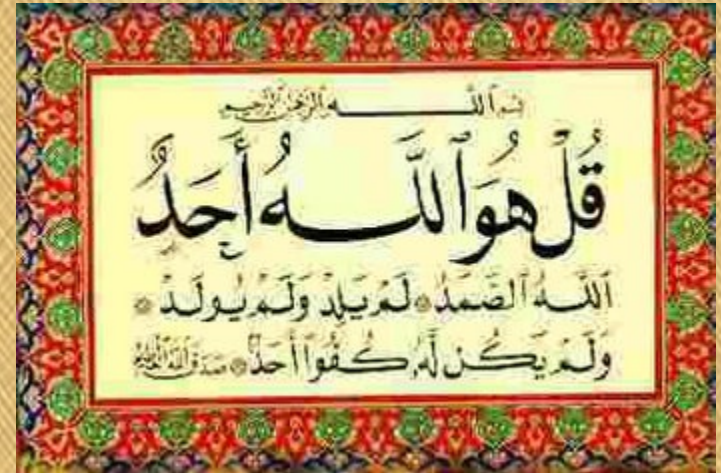 بسم ٱللـــــه ٱلرحمن ٱلرحيم
قُلْ هُوَ ٱللَّـهُ أَحَدٌ
ٱللَّـهُ ٱلصَّمَدُ ۞ لَمْ يَلِدْ وَلَمْ يُولَدْ ۞
وَلَمْ يَكُن لَّهُۥ كُفُوًا أَحَدٌ ۞ صَدَقَ ٱللَّهُ ٱلْعَظِيمُ